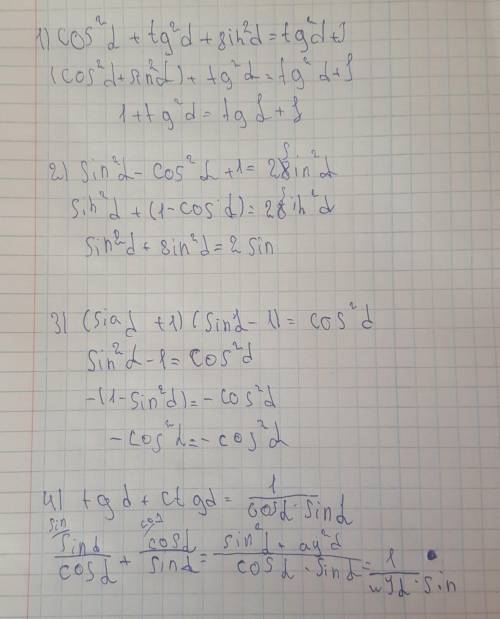 1) cos²α + tg²α + sin²α = tg²α + 1
(cos²α + sin²α) + tg²α = tg²α + 1
1 + tg²α = tg α + 1
2) sin²α - cos²α + 1 = 2sin²α
sin²α + (1 - cos α) = 2sin²α
sin²α + sin²α = 2 sin
3) (sin α + 1) (sin α - 1) = cos²α
sin²α - 1 = cos²α
-(1 - sin²α) = - cos²α
- cos²α = - cos²α
4) tg α + ctg α = 1 / (cos α · sin α)
sin cos
sin α / cos α + cos α / sin α = (sin²α + cos²α) / (cos α · sin α) = 1 / (cos α · sin